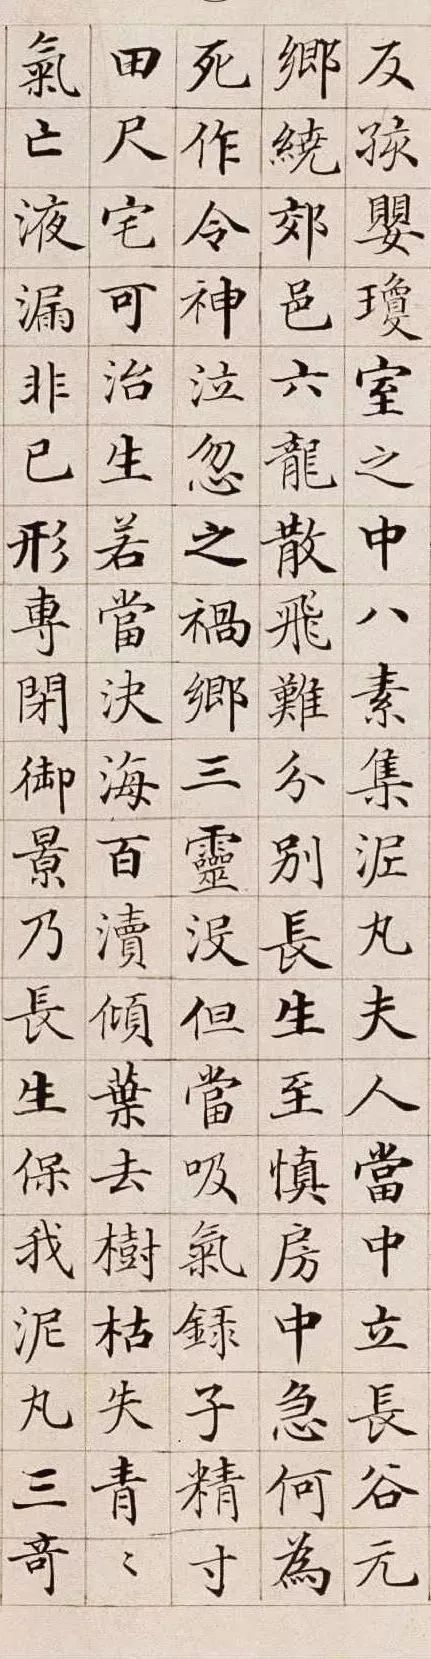 反孩嬰瓊室之中八素集泥丸夫人當中立長谷元
鄉繞郊邑六龍散飛難分別長生至慎房中急何為
死作令神泣忽之禍鄉三靈没但當吸氣録子精寸
田尺宅可治生若當決海百瀆傾葉去樹枯失青〻
氣亡液漏非己形專閉御景乃長生保我泥丸三奇